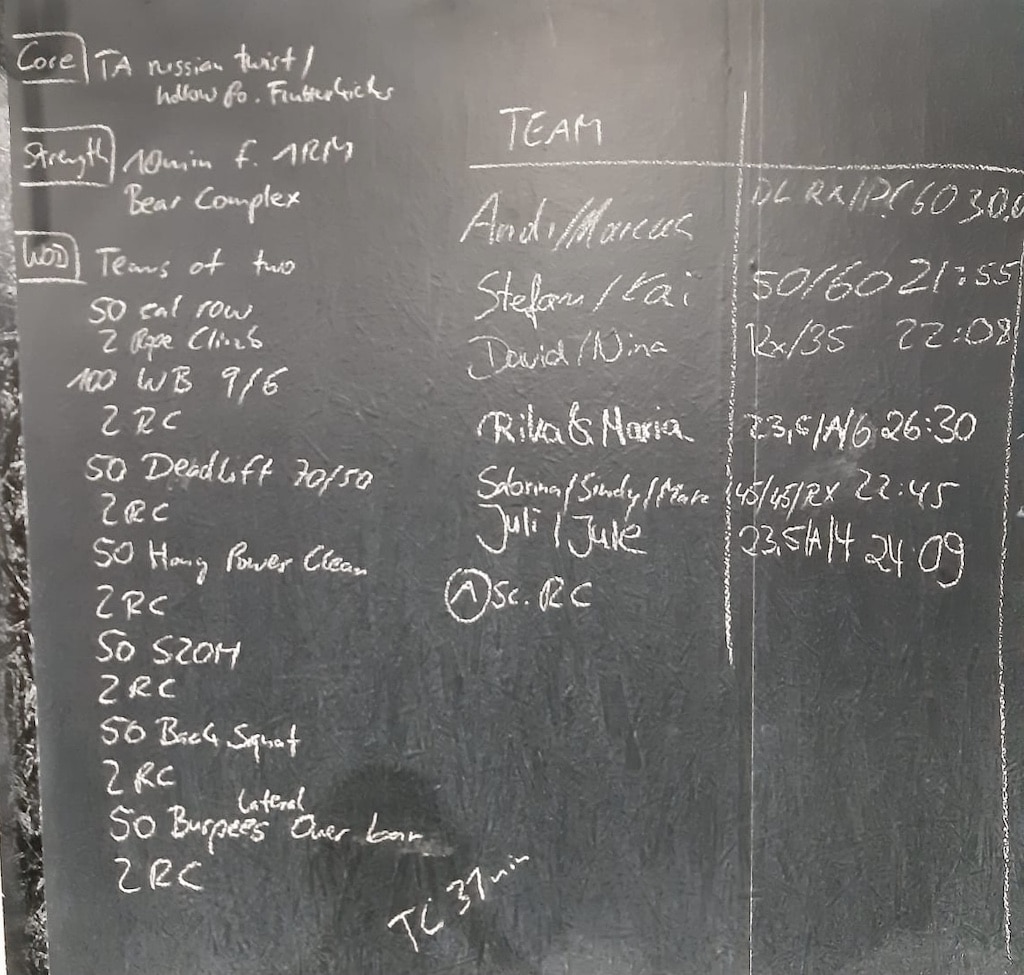 Core TA russian twist/
hollow po. Flutterkicks
Strength 10min f. 1RM
Bear Complex
WOD Teams of two
50 cal row
2 Rope Climb
100 WB 9/6
2 RC
50 Deadlift 70/50
2 RC
50 Hang Power Clean
2 RC
50 S2OH
2 RC
50 Back Squat
2 RC
Lateral
50 Burpees Over bar
2 RC
TC 37min
TEAM
Andi/Marcus DL RX/PC 60 30.0
Stefan/Kai 50/60 21:55
David/Nina Rx/35 22:08
Rika&Maria 23,5/A/6 26:30
Sabrina/Sindy/Marc 45/45/RX 22:45
Juli/Jule 23,5/A/4 24 09
A Sc. RC